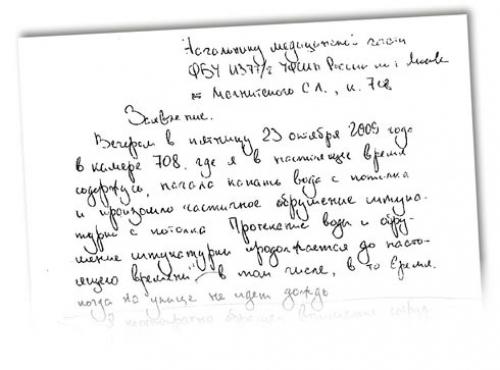 Начальнику медицинской части
ФБУ ИЗ77/2 УФСИН России по г. Москве
Магнитского С.Л., к. 708
Заявление.
Вечером в пятницу 23 октября 2009 года
в камере 708, где я в настоящее время
содержусь, начала капать вода с потолка
и произошло частичное обрушение штука-
турки с потолка. Протекание воды и обру-
шение штукатурки продолжается до насто-
ящего времени, в том числе, в то время,
когда на улице не идет дождь
Я неоднократно обращал внимание сотруд